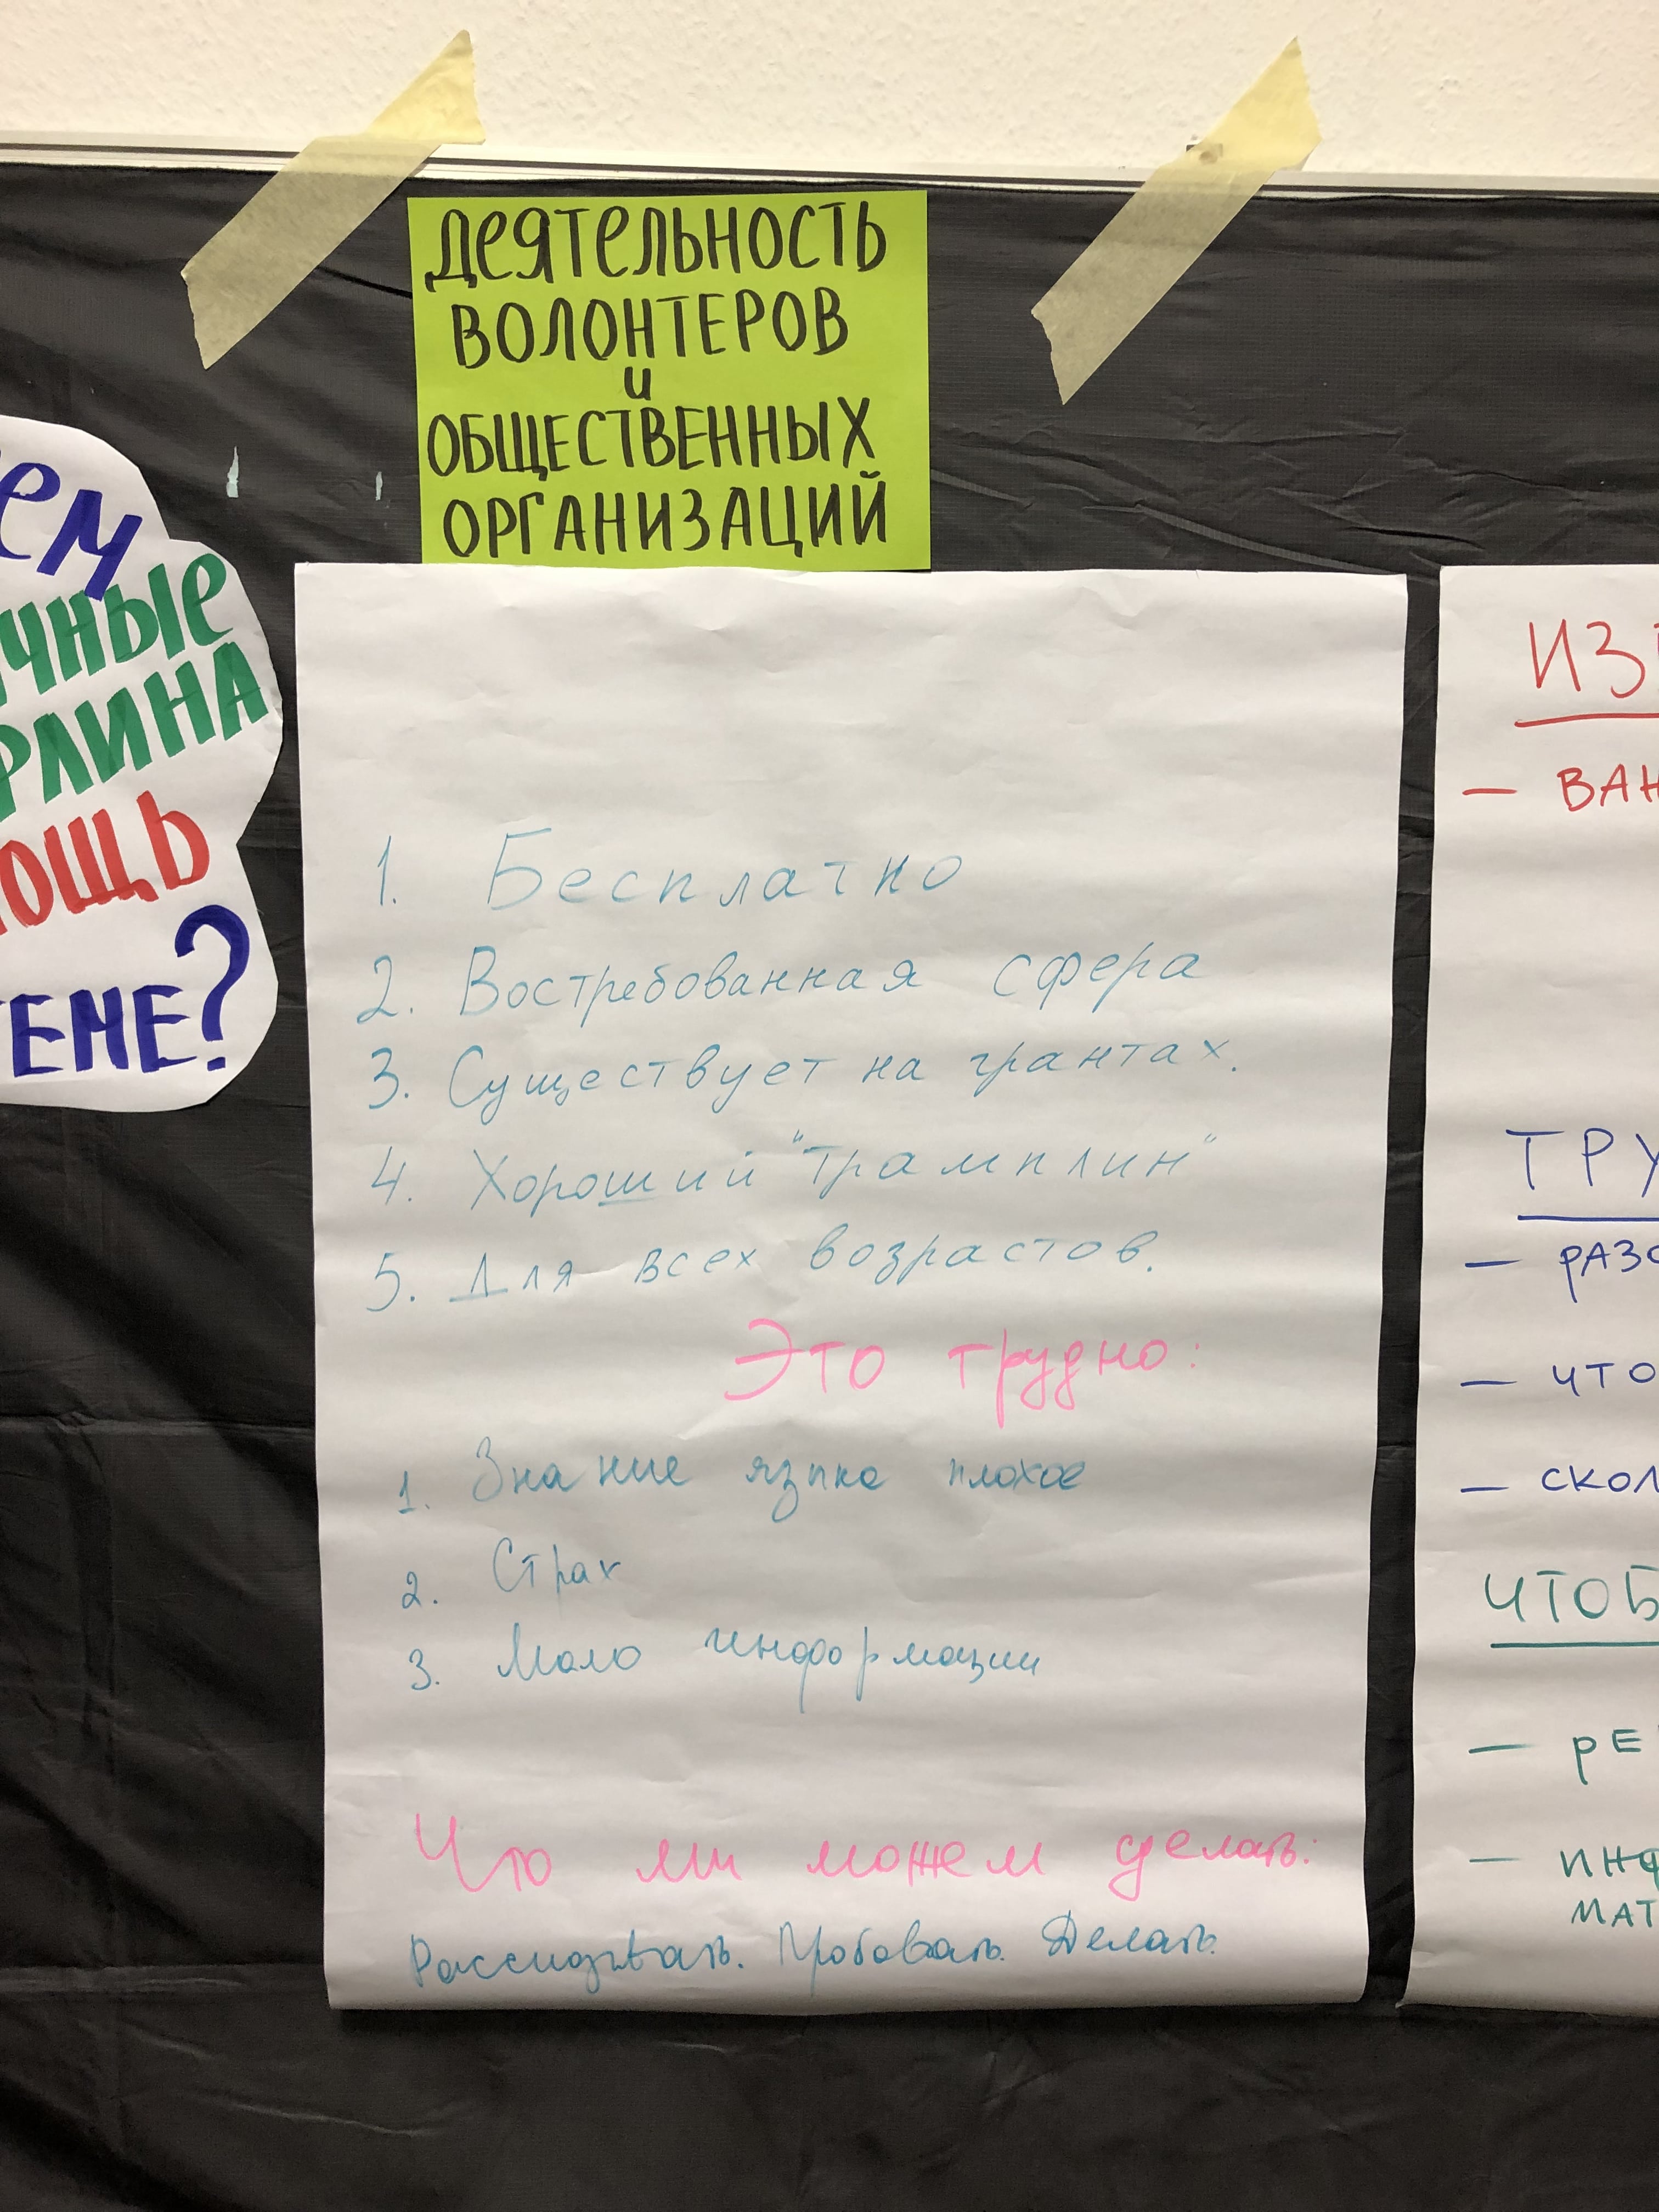 ДЕЯТЕЛЬНОСТЬ
ВОЛОНТЕРОВ
и
ОБЩЕСТВЕННЫХ
ОРГАНИЗАЦИЙ
ем
чные
РЛИНА
ОЩЬ
ЕНЕ?
1. Бесплатно
2. Востребованная сфера
3. Существует на грантах.
4. Хороший "трамплин"
5. Для всех возрастов.
Это трудно:
1. Знание языка плохое
2. Страх
3. Мало информации
Что мы можем сделать:
Рассказывать. Пробовать. Делать.
ИЗ
— ВАН
ТРУ
— РАЗО
— ЧТО
— СКОЛ
ЧТОБ
— РЕ
— ИНФ
МАТ